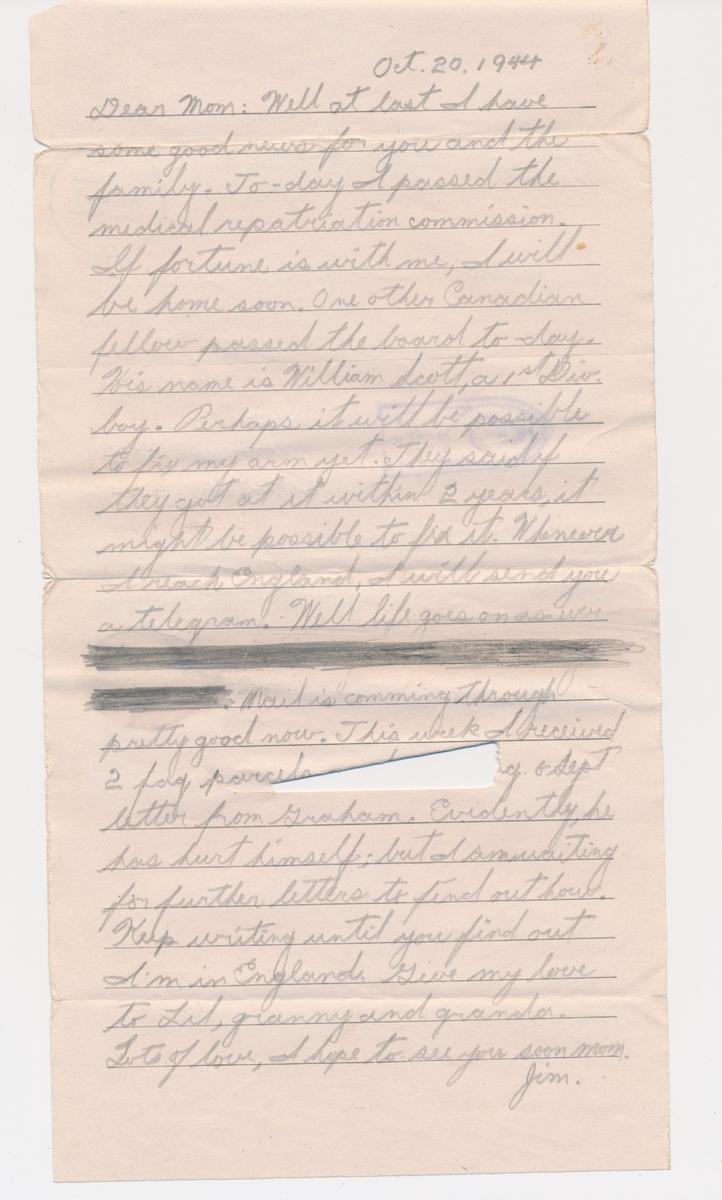 Oct. 20, 1944
Dear Mom: Well at last I have
some good news for you and the
family. To-day I passed the
medical repatriation commission.
If fortune is with me, I will
be home soon. One other Canadian
fellow passed the board to-day.
His name is William Scott, a 1st Div.
boy. Perhaps it will be possible
to fix my arm yet. They said if
they got at it within 2 years, it
might be possible to fix it. Whenever
I reach England, I will send you
a telegram. Well life goes on as ever
. Mail is comming through
pretty good now. This week I received
2 fag parcels g. & Sept
letter from Graham. Evidently, he
has hurt himself; but I am waiting
for further letters to find out how.
Keep writing until you find out
I'm in England. Give my love
to Lil, granny and granda.
Lots of love, I hope to see you soon mom.
Jim.